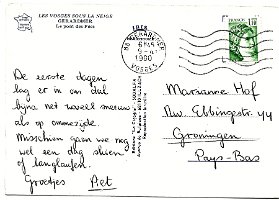 LES VOSGES SOUS LA NEIGE
GERARDMER
Le pont des Fées
88 GERARDMER
1980
VOSGES
De eerste dagen
lag er in ons dal
bijna net zoveel sneeuw
als op ommezijde.
Misschien gaan we nog
wel een dag skiën
of langlaufen.
Groetjes Piet
Marianne Hof
Nw. Ebbingestr. 44
Groningen
Pays-Bas